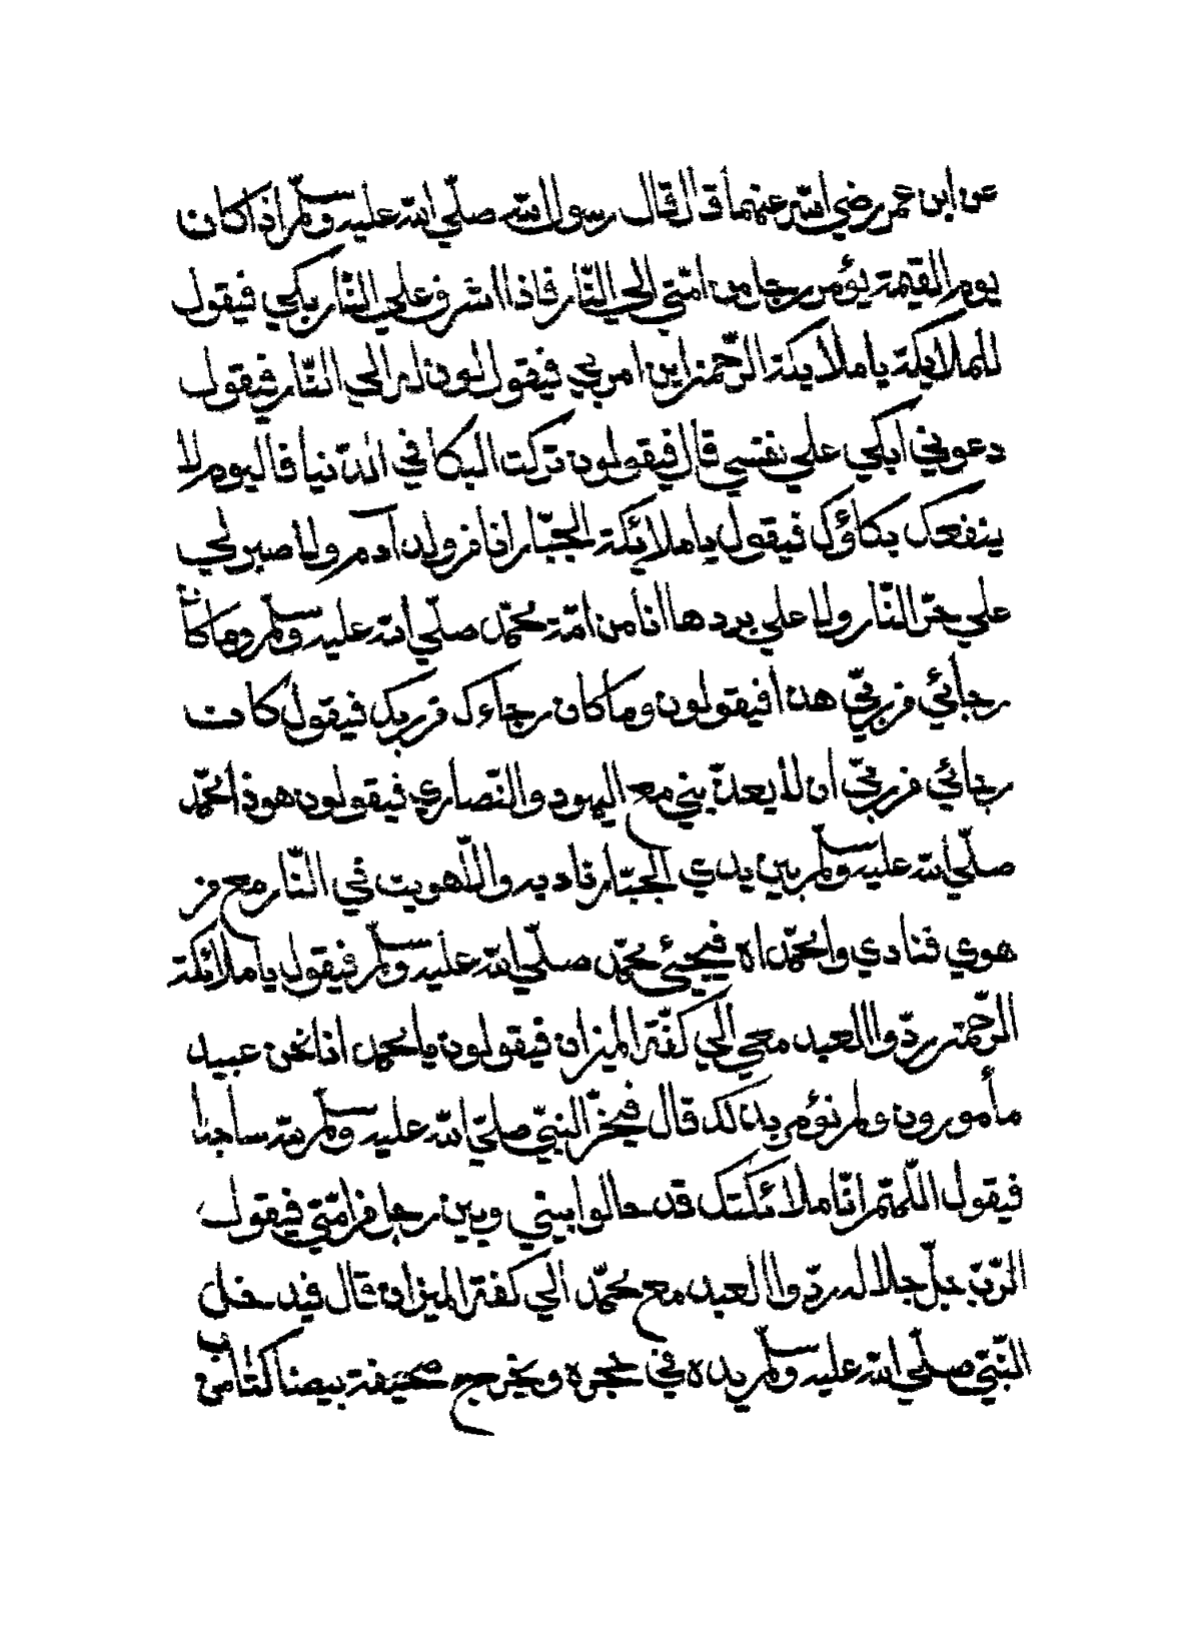 عن ابن عمر رضي الله عنهما قال قال رسول الله صلّي الله عليه وسلّم اذا كان
يوم القيمة يؤمر برجل من امّتي الي النّار فاذا اشرف علي النّار بكي فيقول
للملايكة يا ملايكة الرّحمن اين امر بي فيقولون له الي النّار فيقول
دعوني ابكي علي نفسي قال فيقولون تركت البكا في الدّنيا فاليوم لا
ينفعك بكاؤك فيقول يا ملائكة الجبّار انا من ولد آدم ولا صبر لي
علي حرّ النّار ولا علي بردها انا من امّة محمّد صلّي الله عليه وسلّم وما كان
رجائي من ربّي هذا فيقولون وما كان رجاءك من ربك فيقول كانت
رجائي من ربّي ان لا يعذّبني مع اليهود والنّصاري فيقولون هوذا محمّد
صلّي الله عليه وسلّم بين يدي الجبّار ناديه والّا هويت في النّار مع من
هوي فنادي وا محمّداه فيجيئ محمّد صلّي الله عليه وسلّم فيقول يا ملائكة
الرّحمن ردّوا العبد معي الي كفّة الميزان فيقولون يا محمد انا نحن عبيد
مأمورون ولم نؤمر بذلك قال فيخرّ النبّي صلّي الله عليه وسلّم لله ساجدا
فيقول اللّهمّ انّ ملائكتك قد حالوا بيني وبين رجل من امّتي فيقول
الرّبّ جلّ جلاله ردّوا العبد مع محمّد الي كفة الميزان قال فيدخل
النّبّي صلّي الله عليه وسلّم يده في حجره ويخرج صحيفة بيضا كتاب من